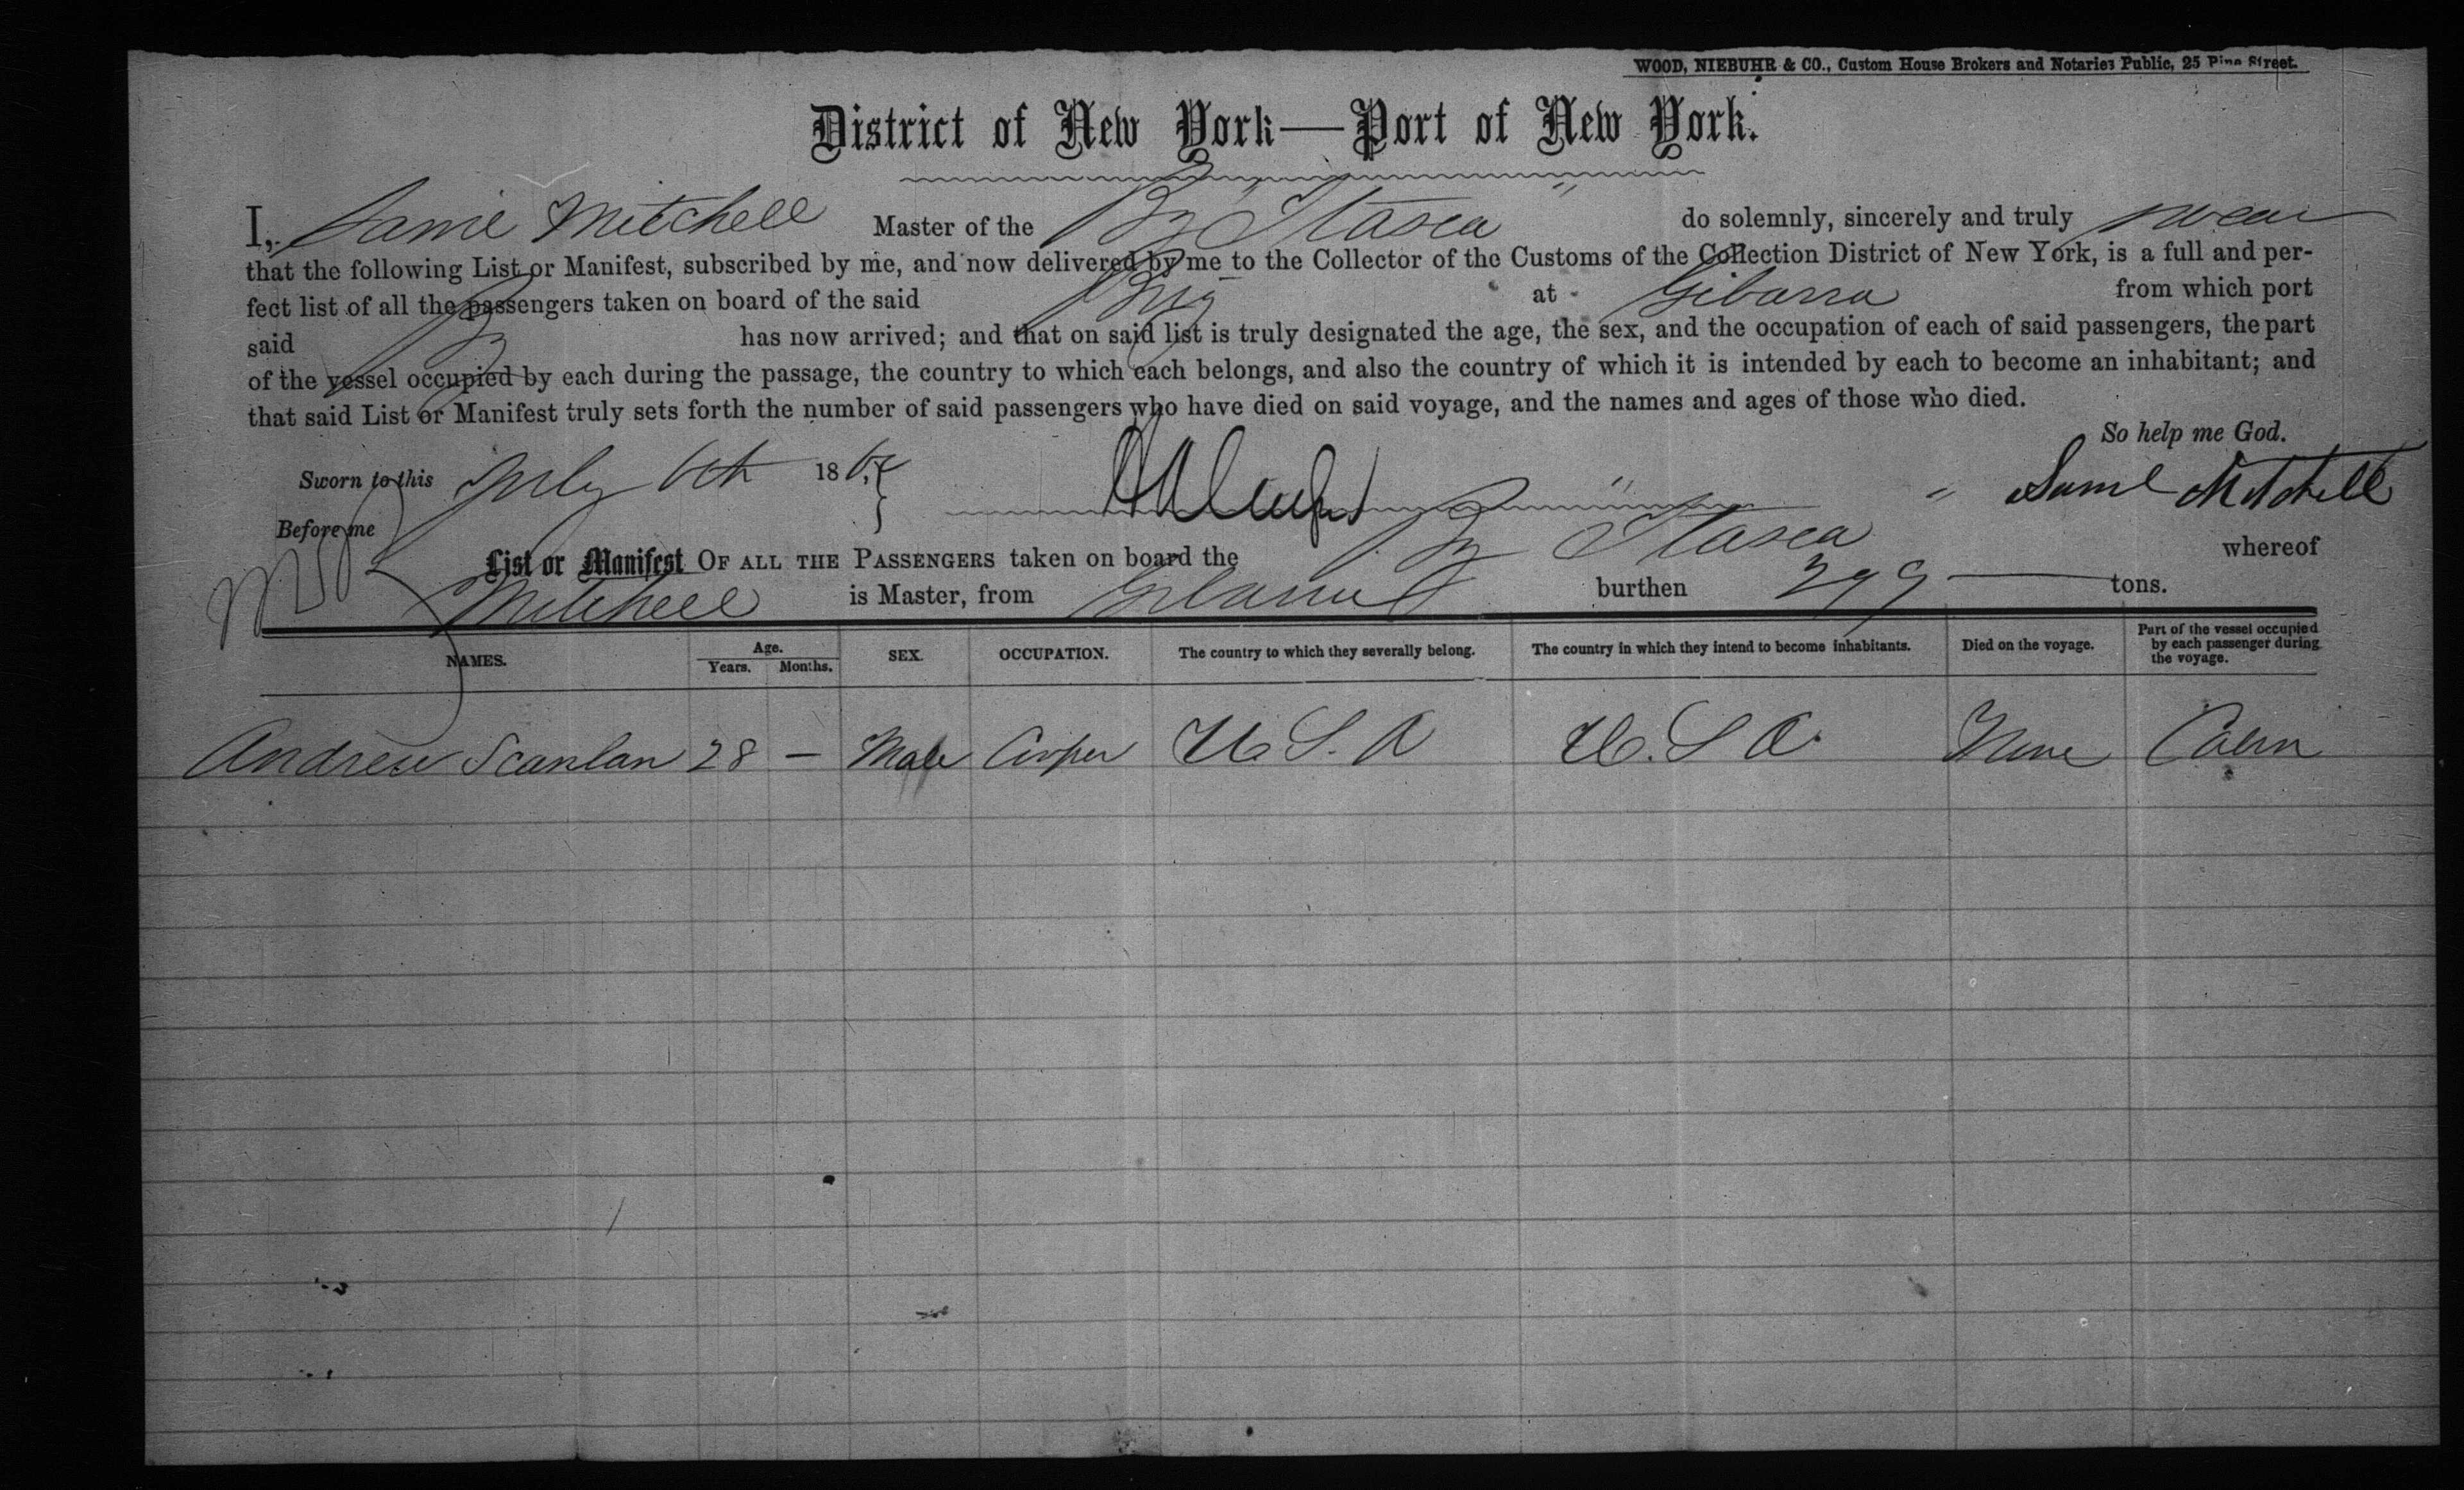 WOOD, NIEBUHR & CO., Custom House Brokers and Notaries Public, 25 Pine Street.
District of New York—Port of New York.
I, Saml Mitchell Master of the Brig "Itasca" do solemnly, sincerely and truly swear
that the following List or Manifest, subscribed by me, and now delivered by me to the Collector of the Customs of the Collection District of New York, is a full and per-
fect list of all the passengers taken on board of the said Brig at Gibarra from which port
said Brig has now arrived; and that on said list is truly designated the age, the sex, and the occupation of each of said passengers, the part
of the vessel occupied by each during the passage, the country to which each belongs, and also the country of which it is intended by each to become an inhabitant; and
that said List or Manifest truly sets forth the number of said passengers who have died on said voyage, and the names and ages of those who died.
So help me God.
Sworn to this July 6th 186 Saml Mitchell
Before me
List or Manifest OF ALL THE PASSENGERS taken on board the Brig "Itasca" whereof
Mitchell is Master, from burthen 299 tons.
NAMES. Age. Years. Months. SEX. OCCUPATION. The country to which they severally belong. The country in which they intend to become inhabitants. Died on the voyage. Part of the vessel occupied by each passenger during the voyage.
Andrew Scanlan 28 — Male Cooper U.S.A U.S.A. None Cabin